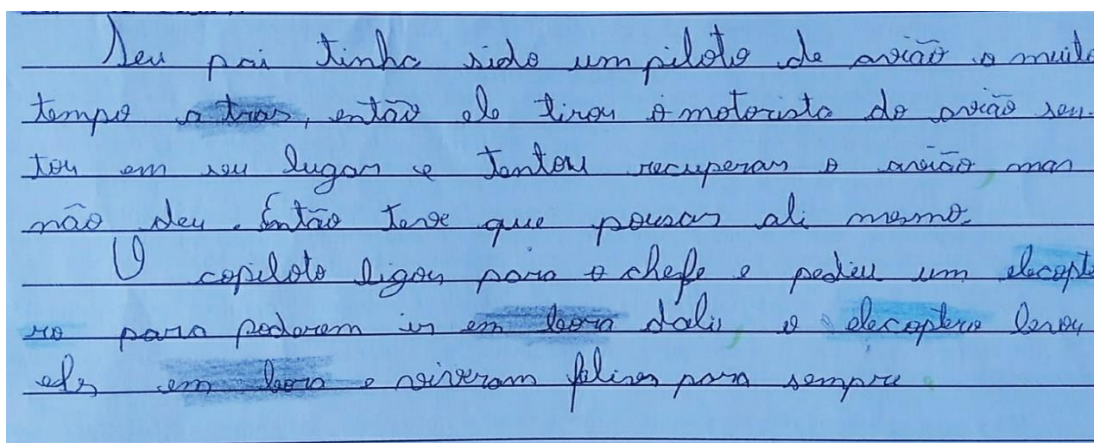 Seu pai tinha sido um piloto de avião a muito
tempo a tras, então ele tirou o motorista do avião sen-
tou em seu lugar e tentou recuperar o avião, mas
não deu. Então teve que pousar ali mesmo.
O copiloto ligou para o chefe e pediu um elecopte
ro para poderem ir em bora dali, o elecoptero levou
eles em bora e viveram felizes para sempre.